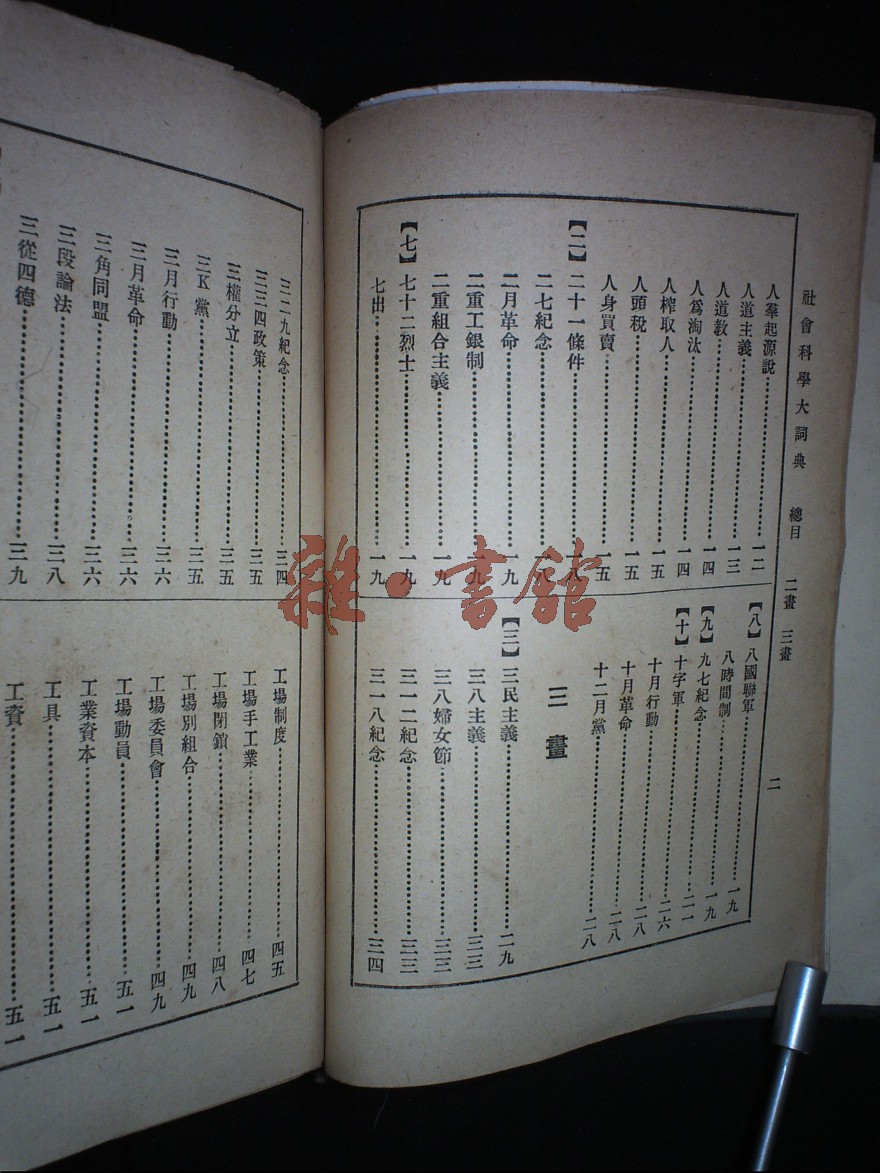 社會科學大詞典 總目 二畫 三畫 二
人羣起源說 一二
人道主義 一三
人道教 一四
人爲淘汰 一四
人榨取人 一五
人頭稅 一五
人身買賣 一五
【二】 二十一條件 一八
二七紀念 一八
二月革命 一九
二重工銀制 一九
二重組合主義 一九
【七】 七十二烈士 一九
七出 一九
【八】 八國聯軍 一九
八時間制 一九
【九】 九七紀念 二一
【十】 十字軍 二六
十月行動 二八
十月革命 二八
十二月黨 二八
三畫
【三】 三民主義 二九
三八主義 三三
三八婦女節 三三
三一二紀念 三三
三一八紀念 三四
三二九紀念 三四
三三四政策 三五
三權分立 三五
三K黨 三五
三月行動 三六
三月革命 三六
三角同盟 三六
三段論法 三八
三從四德 三九
工場制度 四五
工場手工業 四七
工場閉鎖 四八
工場別組合 四九
工場委員會 四九
工場動員 五一
工業資本 五一
工具 五一
工資 五一
雜·書館